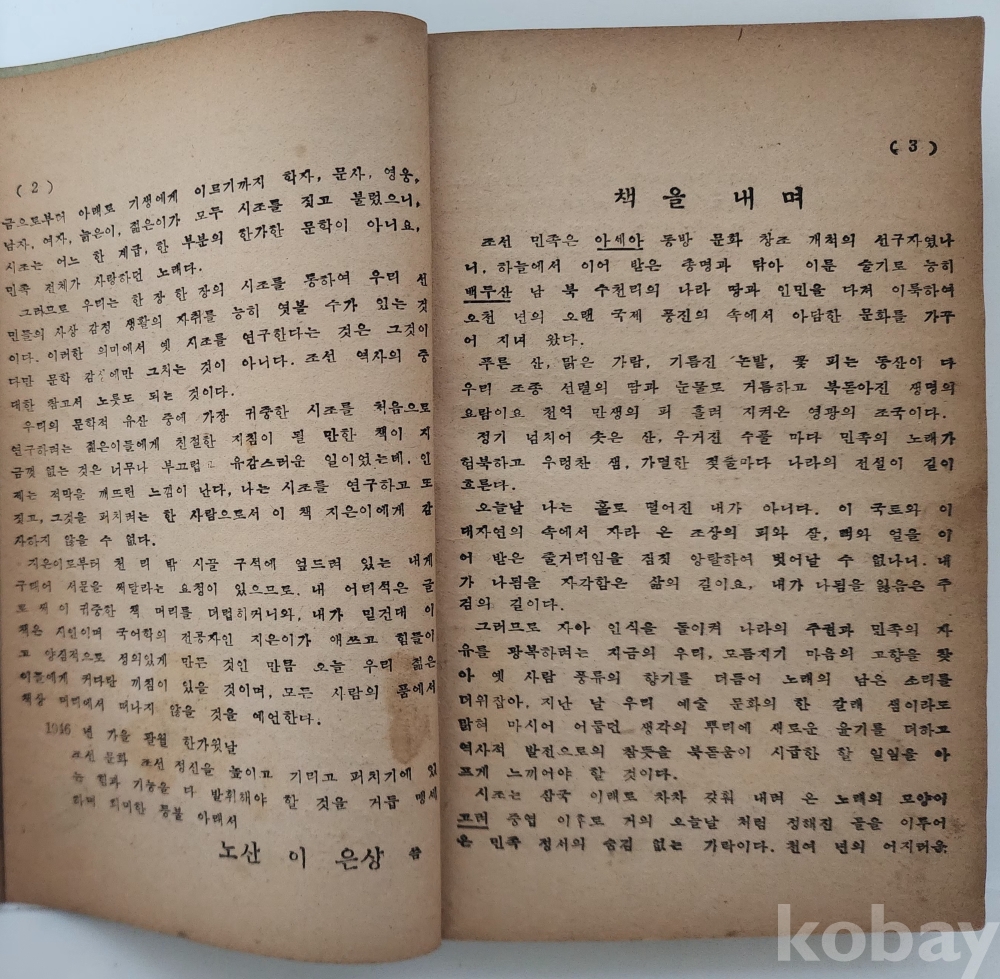 ( 2 )
금으로부터 아래로 기생에게 이르기까지 학자, 문사, 영웅,
남자, 여자, 늙은이, 젊은이가 모두 시조를 짖고 불렀으니,
시조는 어느 한 계급, 한 부분의 한가한 문학이 아니요,
민족 전체가 사랑하던 노래다.
그러므로 우리는 한 장 한 장의 시조를 통하여 우리 선
민들의 사상 감정 생활의 자취를 능히 엿볼 수가 있는 것
이다. 이러한 의미에서 옛 시조를 연구한다는 것은 그것이
다만 문학 감상에만 그치는 것이 아니다. 조선 역사의 중
대한 참고서 노릇도 되는 것이다.
우리의 문학적 유산 중에 가장 귀중한 시조를 처음으로
연구하려는 젊은이들에게 친절한 지침이 될 만한 책이 지
금껏 없는 것은 너무나 부끄럽고 유감스러운 일이었는데, 인
제는 적막을 깨뜨린 느낌이 난다, 나는 시조를 연구하고 또
짖고, 그것을 펴치려는 한 사람으로서 이 책 지은이에게 감
사하지 않을 수 없다.
지은이로부터 천 리 밖 시골 구석에 엎드려 있는 내게
구태어 서문을 써달라는 요청이 있으므로. 내 어리석은 글
로 써 이 귀중한 책 머리를 더럽히거니와, 내가 믿건대 이
책은 시인이며 국어학의 전공자인 지은이가 애쓰고 힘들이
고 양심적으로 정의있게 만든 것인 만큼 오늘 우리 젊은
이들에게 커다란 끼침이 있을 것이며, 모든 사람의 품에서
책상 머리에서 떠나지 않을 것을 예언한다.
1946 년 가을 팔월 한가윗날
조선 문화 조선 정신을 높이고 기리고 펴치기에 있
는 힘과 기능을 다 발휘해야 할 것을 거듭 맹세
하며 희미한 등불 아래서
노산 이 은상
( 3 )
책 을 내 며
조선 민족은 아세아 동방 문화 창조 개척의 선구자였나
니, 하늘에서 이어 받은 총명과 닦아 이룬 슬기로 능히
백두산 남 북 수천리의 나라 땅과 인민을 다져 이룩하여
오천 년의 오랜 국제 풍진의 속에서 아담한 문화를 가꾸
어 지녀 왔다.
푸른 산, 맑은 가람, 기름진 논밭, 꽃 피는 동산이 다
우리 조종 선열의 땀과 눈물로 거름하고 북돋아진 생명의
요람이요 천역 만생의 피 흘려 지켜온 영광의 조국이다.
정기 넘치어 솟은 산, 우거진 수풀 마다 민족의 노래가
험북하고 우렁찬 샘, 가열한 젖줄마다 나라의 전설이 길이
흐른다.
오늘날 나는 홀로 떨어진 내가 아니다. 이 국토와 이
대자연의 속에서 자라 온 조상의 피와 살, 뼈와 얼을 이
어 받은 줄거리임을 짐짓 앙탈하여 벗어날 수 없나니. 내
가 나됨을 자각함은 삶의 길이요, 내가 나됨을 잃음은 주
검의 길이다.
그러므로 자아 인식을 돌이켜 나라의 주권과 민족의 자
유를 광복하려는 지금의 우리, 모름지기 마음의 고향을 찾
아 옛 사람 풍류의 향기를 더듬어 노래의 남은 소리를
더위잡아, 지난 날 우리 예술 문화의 한 갈래 샘이라도
맑혀 마시어 어둡던 생각의 뿌리에 새로운 윤기를 더하고
역사적 발전으로의 참뜻을 북돋움이 시급한 할 일임을 아
프게 느끼어야 할 것이다.
시조는 삼국 이래로 차차 갖춰 내려 온 노래의 모양이
고려 중엽 이후로 거의 오늘날 처럼 정해진 꼴을 이루어
온 민족 정서의 숨김 없는 가락이다. 천여 년의 어지러운
kobay